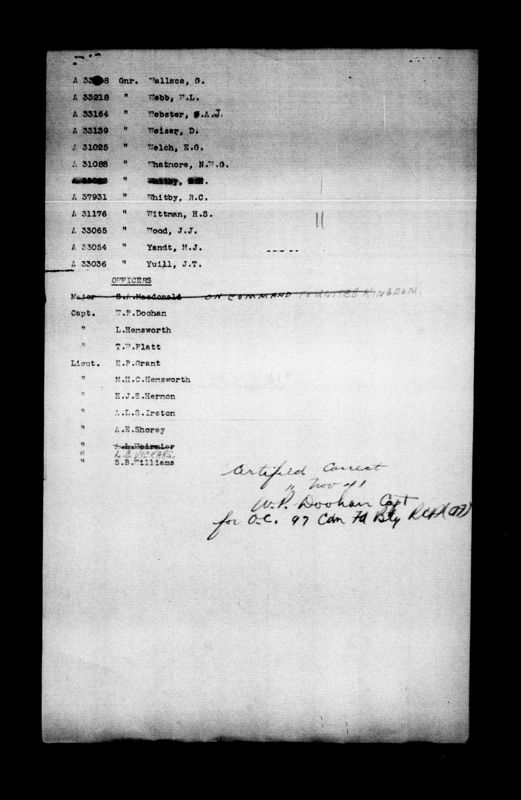 A 33 8 Gnr. Wallace, G.
A 33218 " Webb, W.L.
A 33164 " Webster, A.J.
A 33139 " Weiser, D.
A 31025 " Welch, E.G.
A 31088 " Whatmore, N.W.G.
A "
A 37931 " Whitby, R.C.
A 31176 " Wittman, H.S.
A 33065 " Wood, J.J.
A 33054 " Yandt, M.J.
A 33036 " Yuill, J.T.
OFFICERS
Major Macdonald ON COMMAND TO UNITED KINGDOM.
Capt. W.P.Doohan
" L.Hemsworth
" T.W.Platt
Lieut. E.P.Grant
" N.H.C.Hemsworth
" E.J.S.Hermon
" A.L.S.Ireton
" A.E.Shorey
"
" VICKERS
" S.B.Williams
Certified Correct
11 Nov 41
W.P. Doohan Capt
for O.C. 97 Cdn Fd Bty RCA (AF)